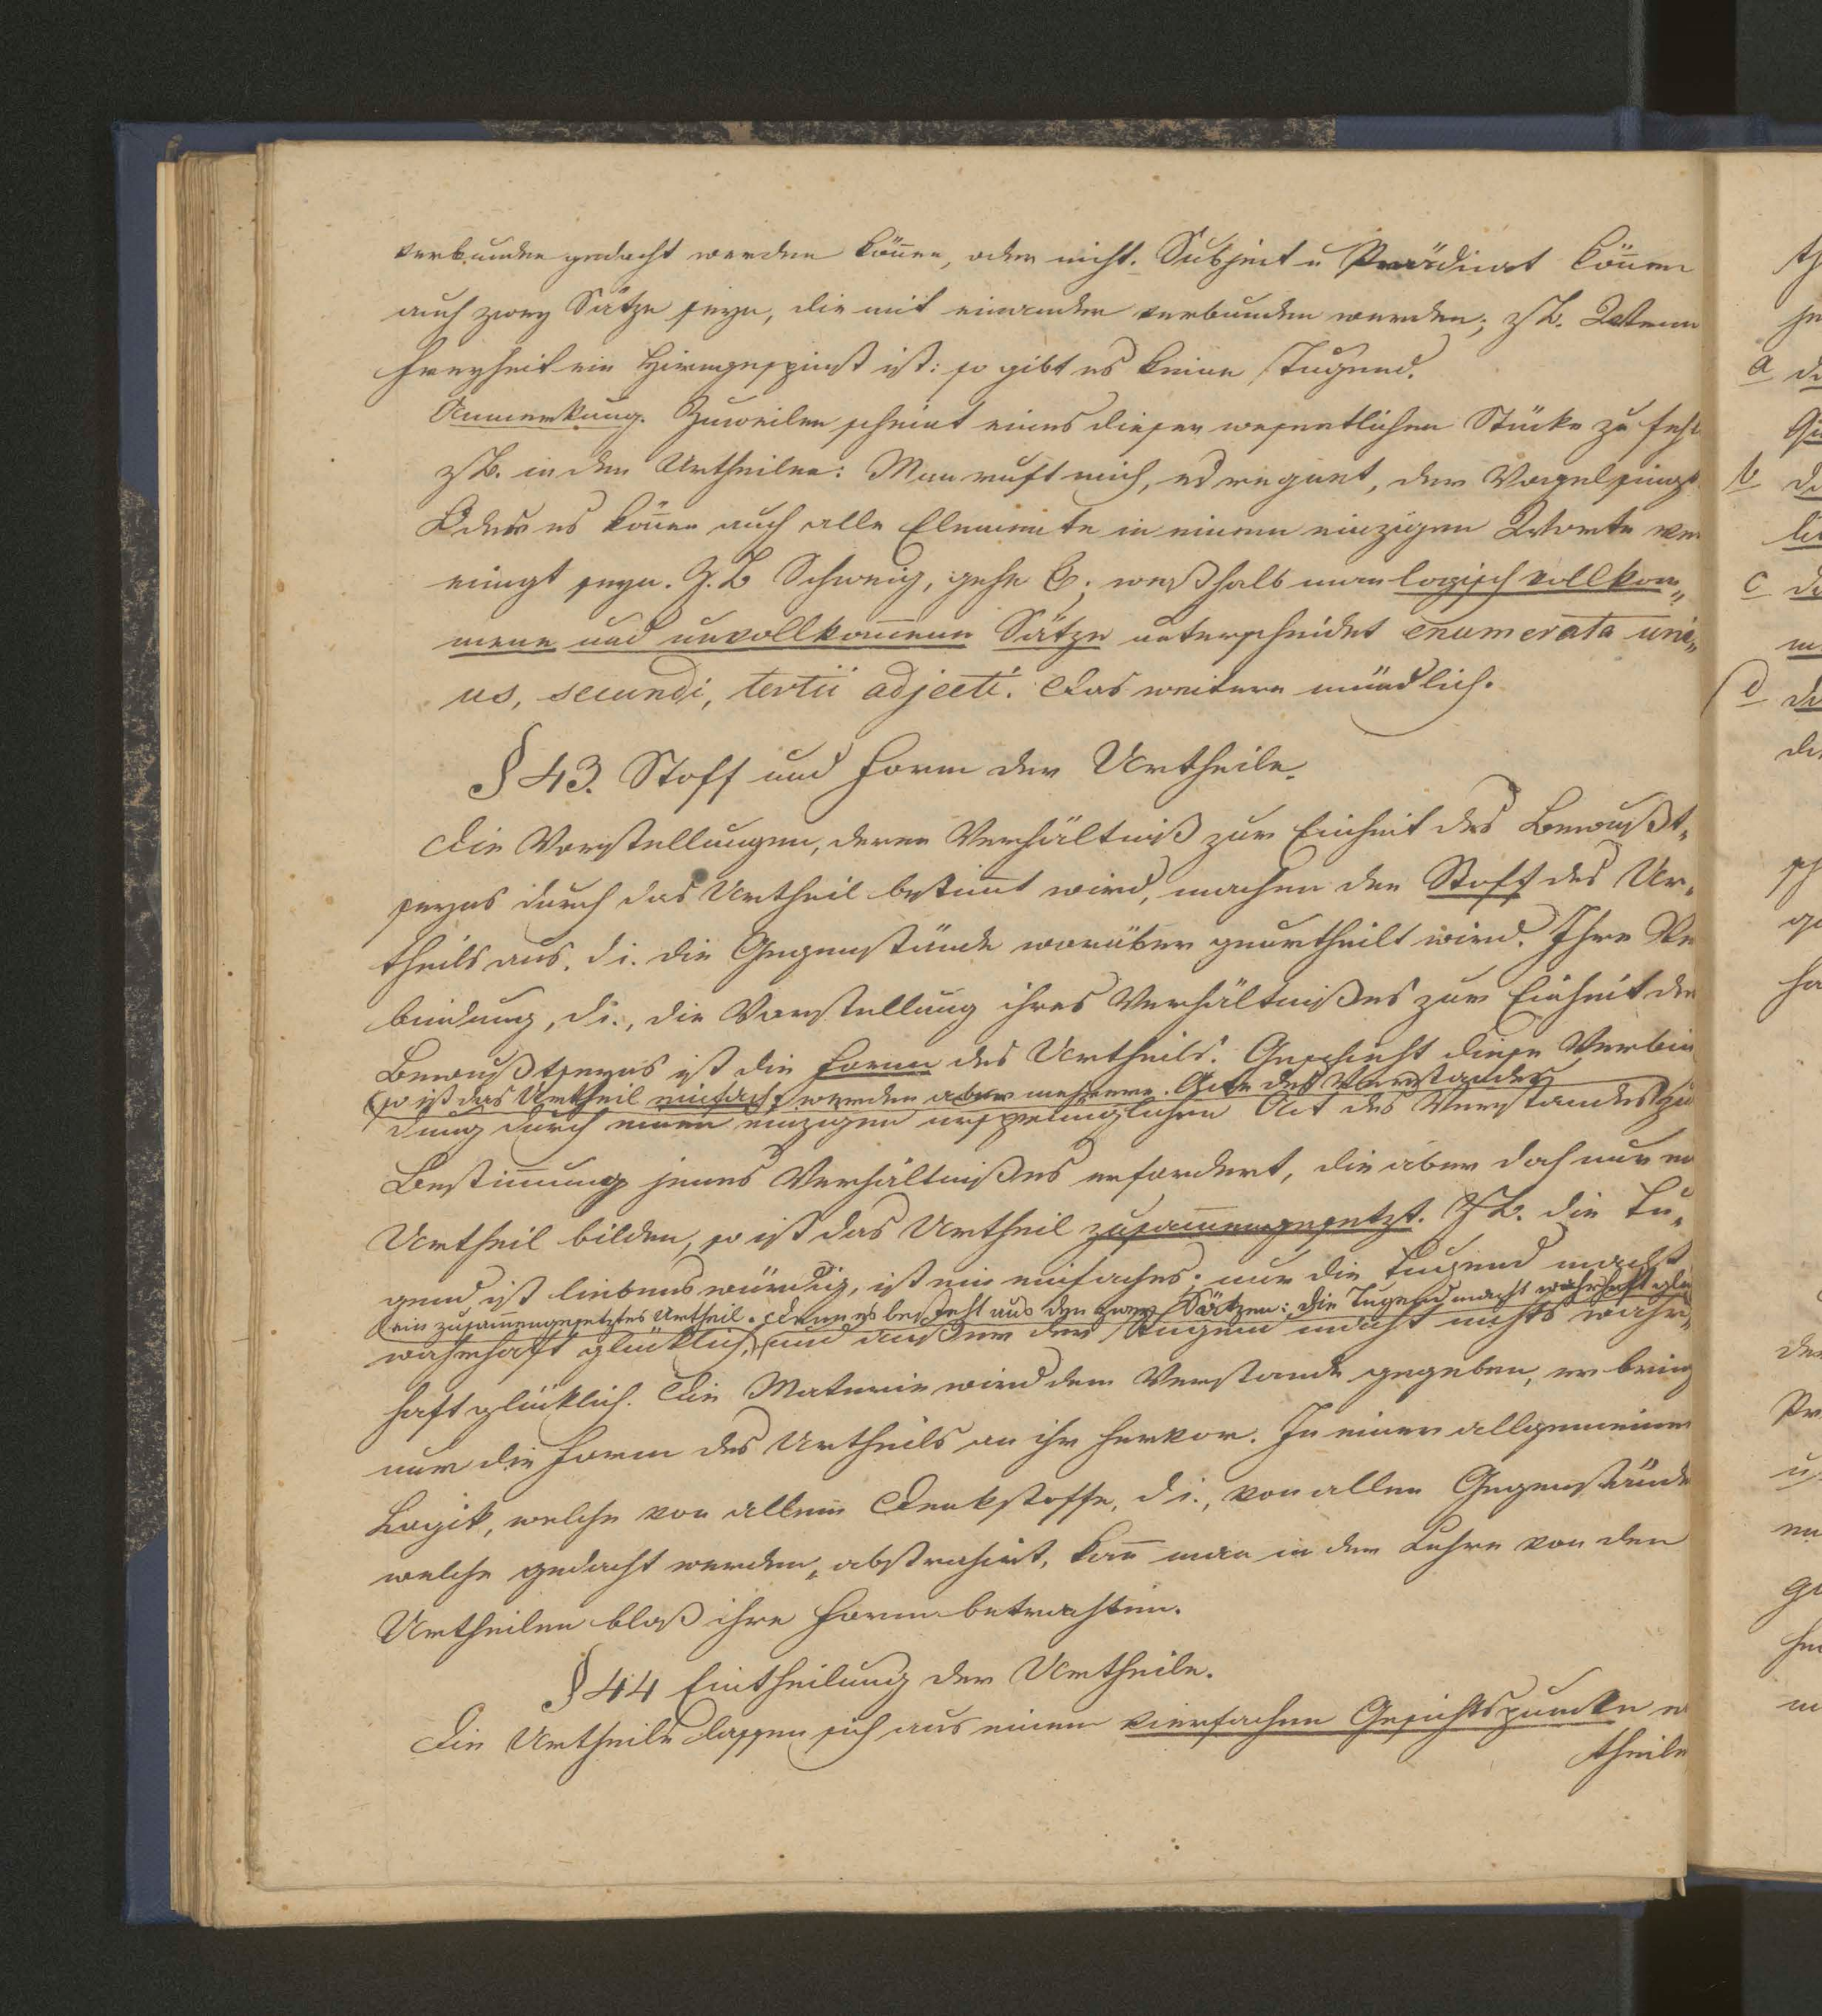 verbunden gedacht werden köñen, oder nicht. Subject u Prädicat köñen
auch zwey Sätze seyn, die mit einander verbunden werden; zB. Wenn
Freyheit ein Hirngespinst ist: so gibt es keine Tugend.
Anmerkung. Zuweilen scheint eines dieser wesentlichen Stücke zu fehl
zB. in den Urtheilen: Man ruft mich, es regnet, der Vogel singt
Oder es köñen auch alle Elemente in einem einzigen Worte ver
einigt seyn. Z.B Schweig, gehe &; weßhalb man logisch vollkom„
mene und unvollkom̃ene Sätze unterscheidet enumerata uni„
us, secundi, tertii adjecti. Das weitere mündlich.
§ 43. Stoff und Form der Urtheile.
Die Vorstellungen, deren Verhältniß zur Einheit des Bewußt„
seyns durch das Urtheil bestim̃t wird, machen den Stoff des Ur„
theils aus. d i. die Gegenstände worüber geurtheilt wird. Ihre Ve
bindung, d i., die Vorstellung ihres Verhältnißes zur Einheit des
Bewußtseyns ist die Form des Urtheils. Geschieht diese Verbin
so ist das Urtheil einfach; werden aber mehrere Acte des Verstandes
dung durch einen einzigen ursprünglichen Act des Verstandes zu
Bestim̃ung jenes Verhältnißes erfordert, die aber doch nur ein
Urtheil bilden, so ist das Urtheil zusam̃engesetzt. ZB. die Tu„
gend ist liebenswürdig, ist ein einfaches; nur die Tugend macht
ein zusam̃engesetztes Urtheil. Denn es besteht aus den zwey Sätzen: die Tugend macht wahrhaft glü
wahrhaft glücklich, und außer der Tugend macht nichts wahr„
haft glücklich. Die Materie wird dem Verstande gegeben, er bring
nur die Form des Urtheils an ihr hervor. In einer allgemeinen
Logik, welche von allem Denkstoffe, d i., von allen Gegenstände
welche gedacht werden, abstrahirt, kañ man in der Lehre von den
Urtheilen bloß ihre Form betrachten.
§ 44 Eintheilung der Urtheile.
Die Urtheile lassen sich aus einem vierfachen Gesichtspuncte e
theile